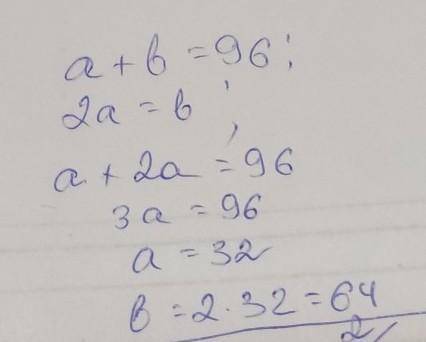 a + b = 96;
2a = b;
a + 2a = 96
3a = 96
a = 32
b = 2·32 = 64